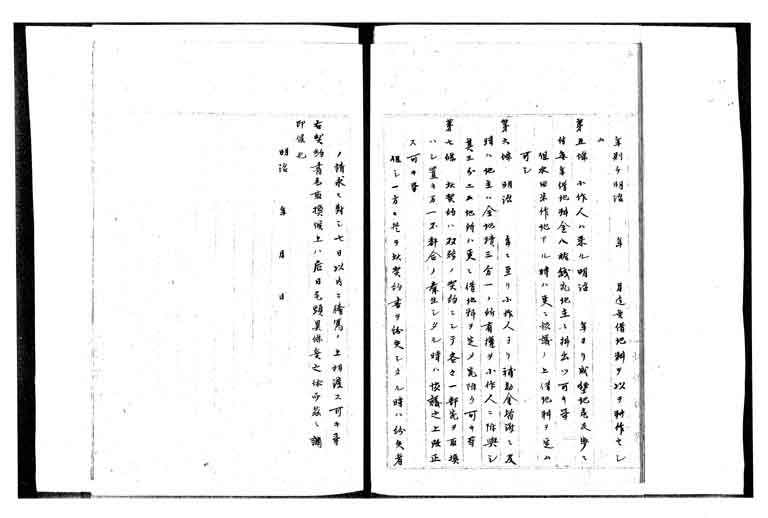 年則チ明治　年　月迄無借地料ヲ以テ耕作セシ
ム
第五條　小作人ハ来ル明治　年ヨリ成墾地壱反歩ニ
付毎年借地料金八拾銭宛地主ニ拂出ツ可キ事
但水田米作地アル時ハ更ニ協議ノ上借地料ヲ定ム
可シ
第六條　明治　年ニ至リ小作人ヨリ補助金皆済ニ及
時ハ地主ハ全地積三分一ノ所有権ヲ小作人ニ附与シ
其三分二ノ地積ハ更ニ借地料ヲ定メ
可キ事
第七條　此契約ハ双務ノ契約ニシテ各々一部宛ヲ取換
ハシ置キ万一不都合ノ廉生シタル時ハ協議之上改正
ス可キ事
但シ一方ニテ此契約書ヲ紛失シタル時ハ紛失者
ノ請求ニ対シ七日以内ニ謄寫ノ上相渡ス可キ事
右契約書為取換候上ハ后日毛頭異條無之依而茲ニ調
印候也
明治　年　月　日